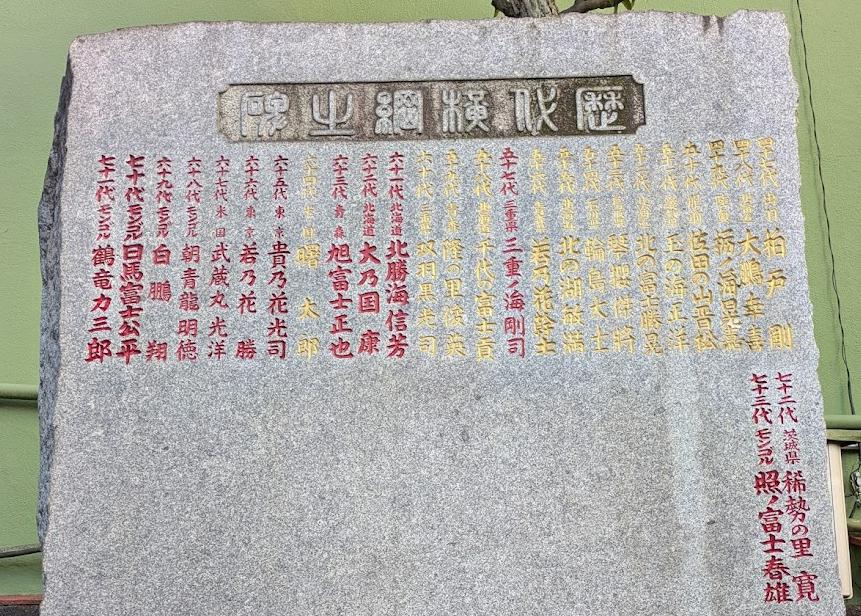 歴代横綱之碑
四七代 柏戸 剛
四八代 大鵬幸喜
四九代 栃ノ海晃嘉
五十代 佐田の山晋松
五一代 玉の海正洋
五二代 北の富士勝晃
五三代 琴櫻傑将
五四代 輪島大士
五五代 北の湖敏満
五六代 若乃花幹士
五十七代 三重県 三重ノ海剛司
五八代 千代の富士貢
五九代 青森 隆の里俊英
六十代 三重 双羽黒光司
六十一代 北海道 北勝海信芳
六十二代 北海道 大乃国 康
六十三代 青森 旭富士正也
六十四代 米国 曙 太郎
六十五代 東京 貴乃花光司
六十六代 東京 若乃花 勝
六十七代 米国 武蔵丸光洋
六十八代 モンゴル 朝青龍明徳
六十九代 モンゴル 白鵬 翔
七十代 モンゴル 日馬富士公平
七十一代 モンゴル 鶴竜力三郎
七十二代 茨城県 稀勢の里 寛
七十三代 モンゴル 照ノ富士春雄